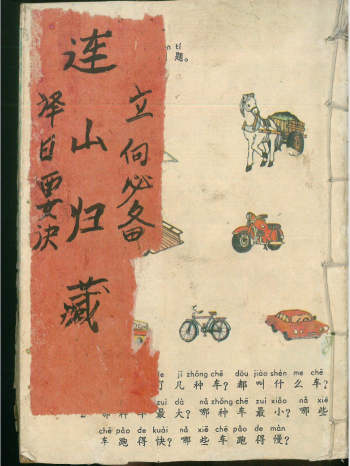 立向必备
连山归藏
择日要决
tí
题。
jǐ zhǒng chē dōu jiào shén me chē
了几种车?都叫什么车?
zuì dà nǎ zhǒng chē zuì xiǎo nǎ xiē
种车最大?哪种车最小?哪些
chē pǎo de kuài nǎ xiē chē pǎo de màn
车跑得快?哪些车跑得慢?